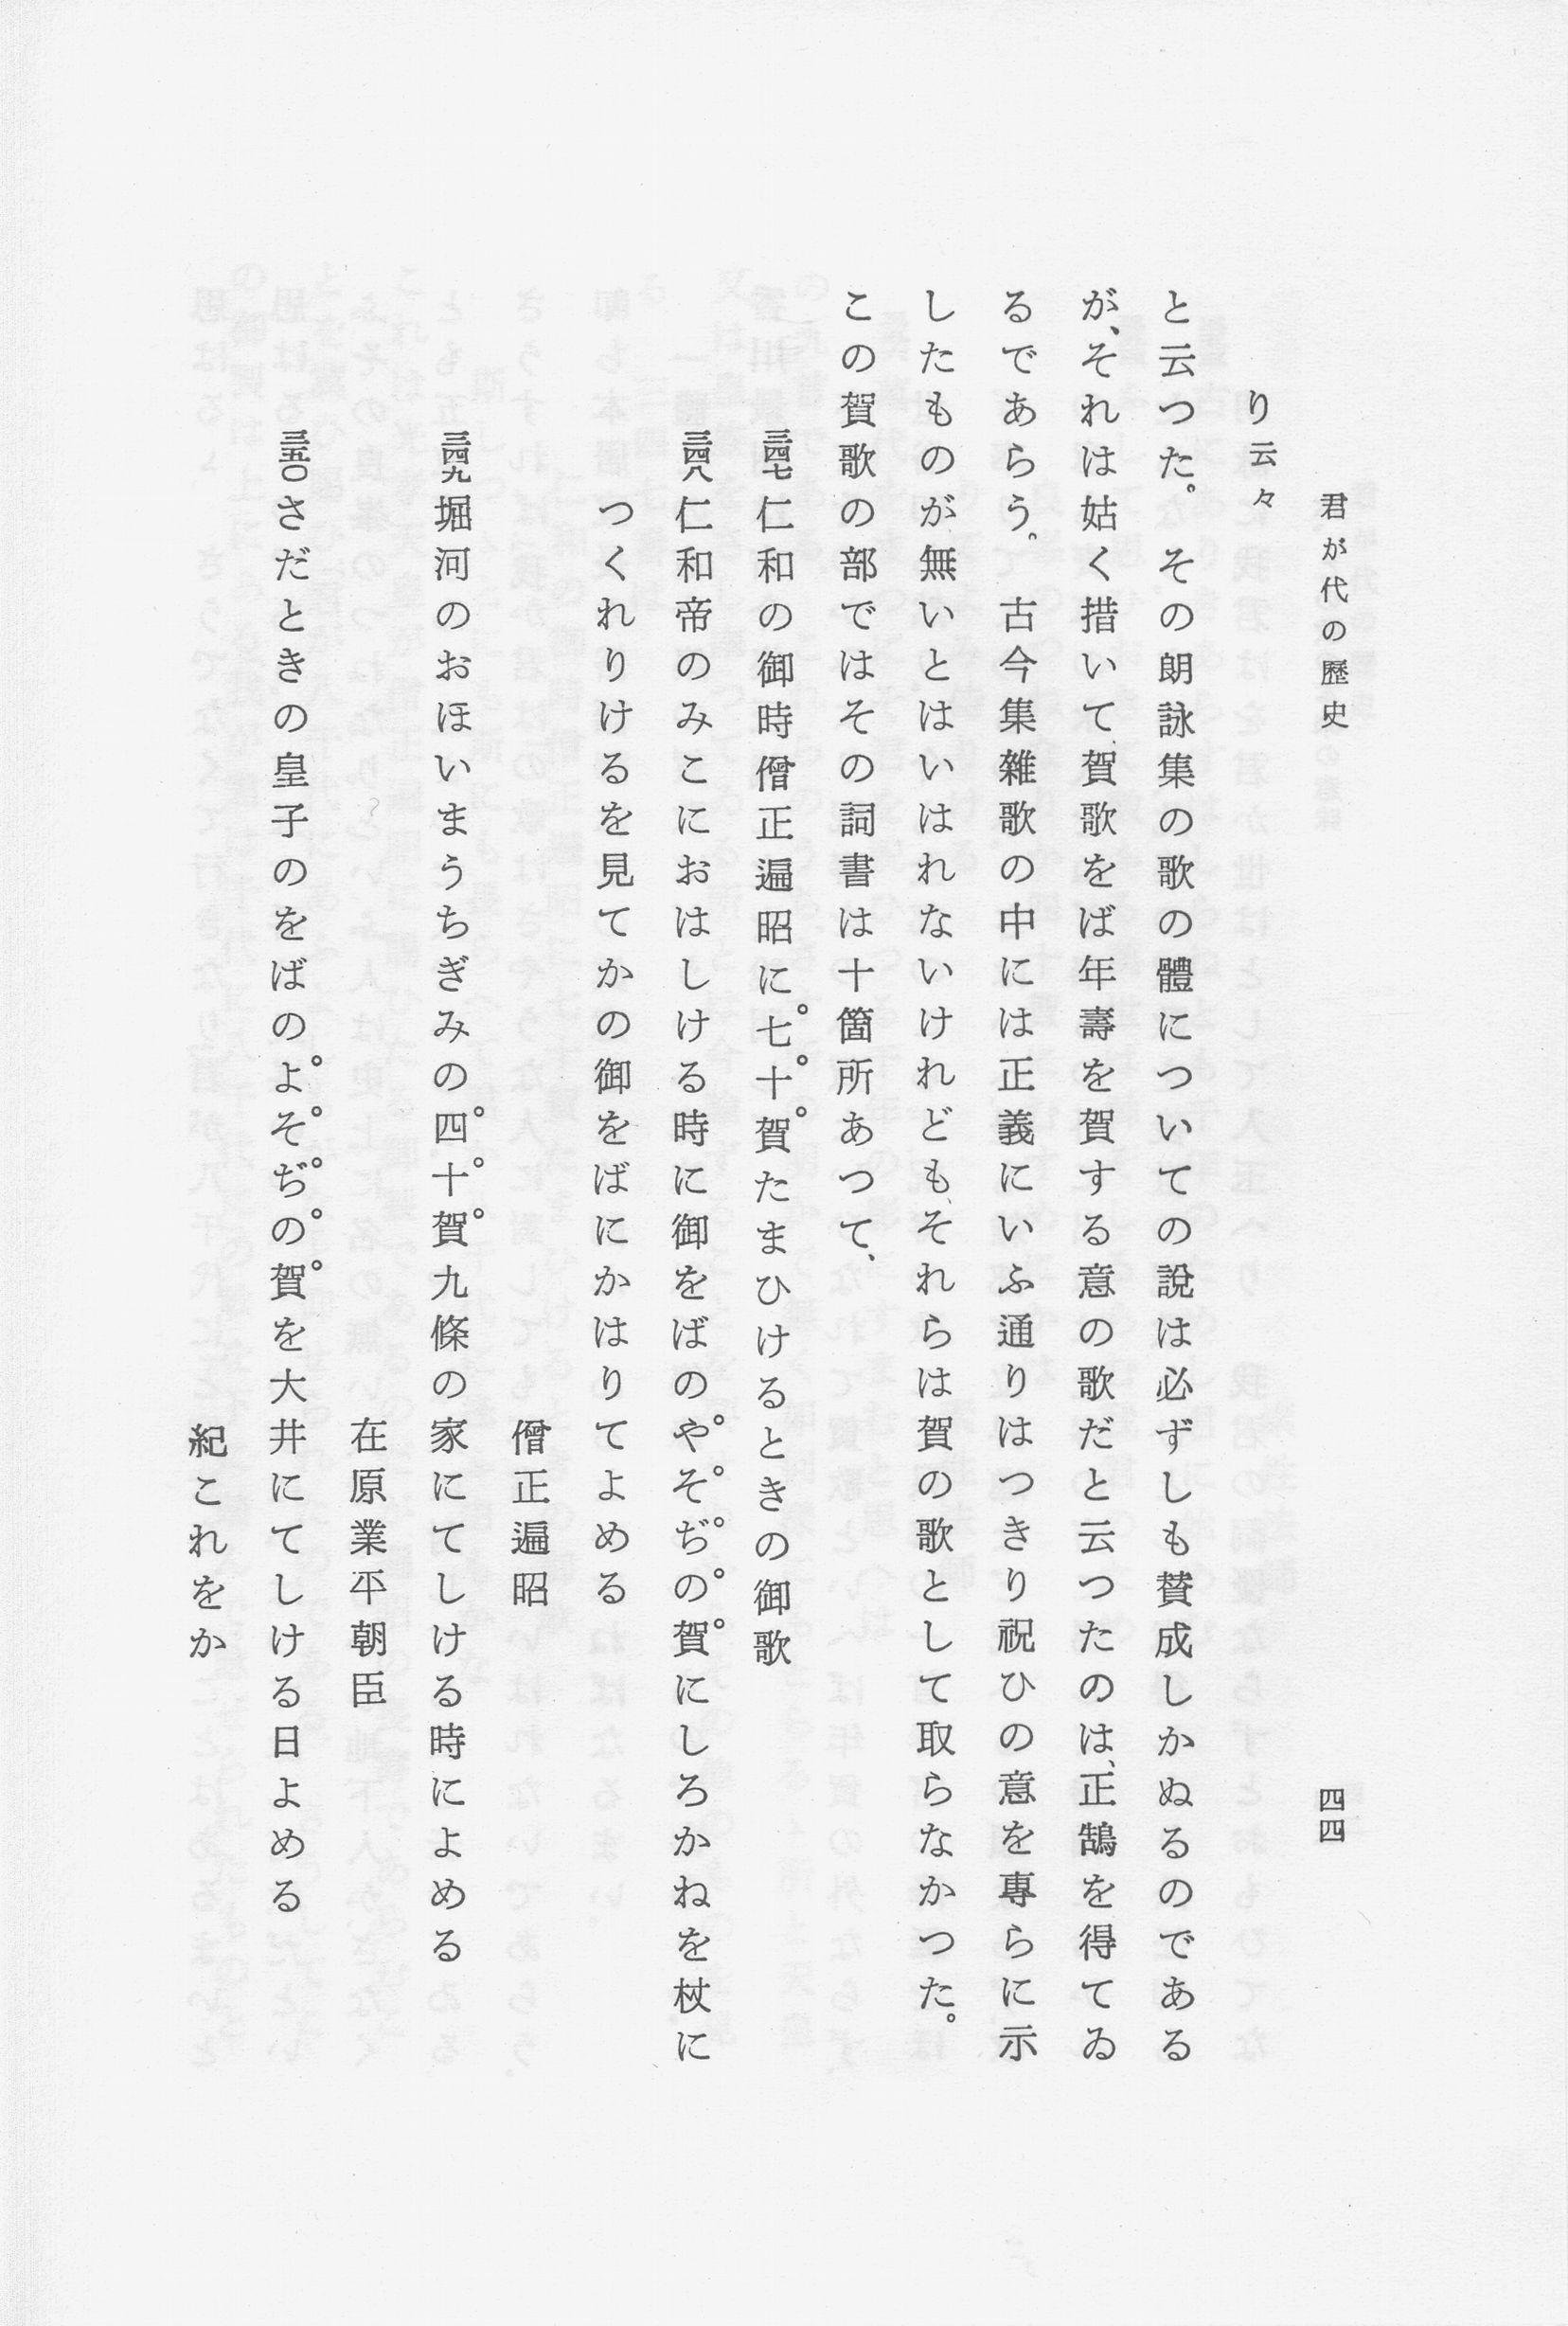 君が代の歷史
四四
り云々
と云つた。その朗詠集の歌の體についての說は必ずしも賛成しかぬるのである
が、それは姑く措いて賀歌をば年壽を賀する意の歌だと云つたのは、正鵠を得てゐ
るであらう。古今集雜歌の中には正義にいふ通りはつきり祝ひの意を專らに示
したものが無いとはいはれないけれども、それらは賀の歌として取らなかつた。
この賀歌の部ではその詞書は十箇所あつて、
三四七 仁和の御時僧正遍昭に七十賀たまひけるときの御歌
三四八 仁和帝のみこにおはしける時に御をばのやそぢの賀にしろかねを杖に
つくれりけるを見てかの御をばにかはりてよめる
僧正遍昭
三四九 堀河のおほいまうちぎみの四十賀九條の家にてしける時によめる
在原業平朝臣
三五〇 さだときの皇子のをばのよそぢの賀を大井にてしける日よめる
紀これをか